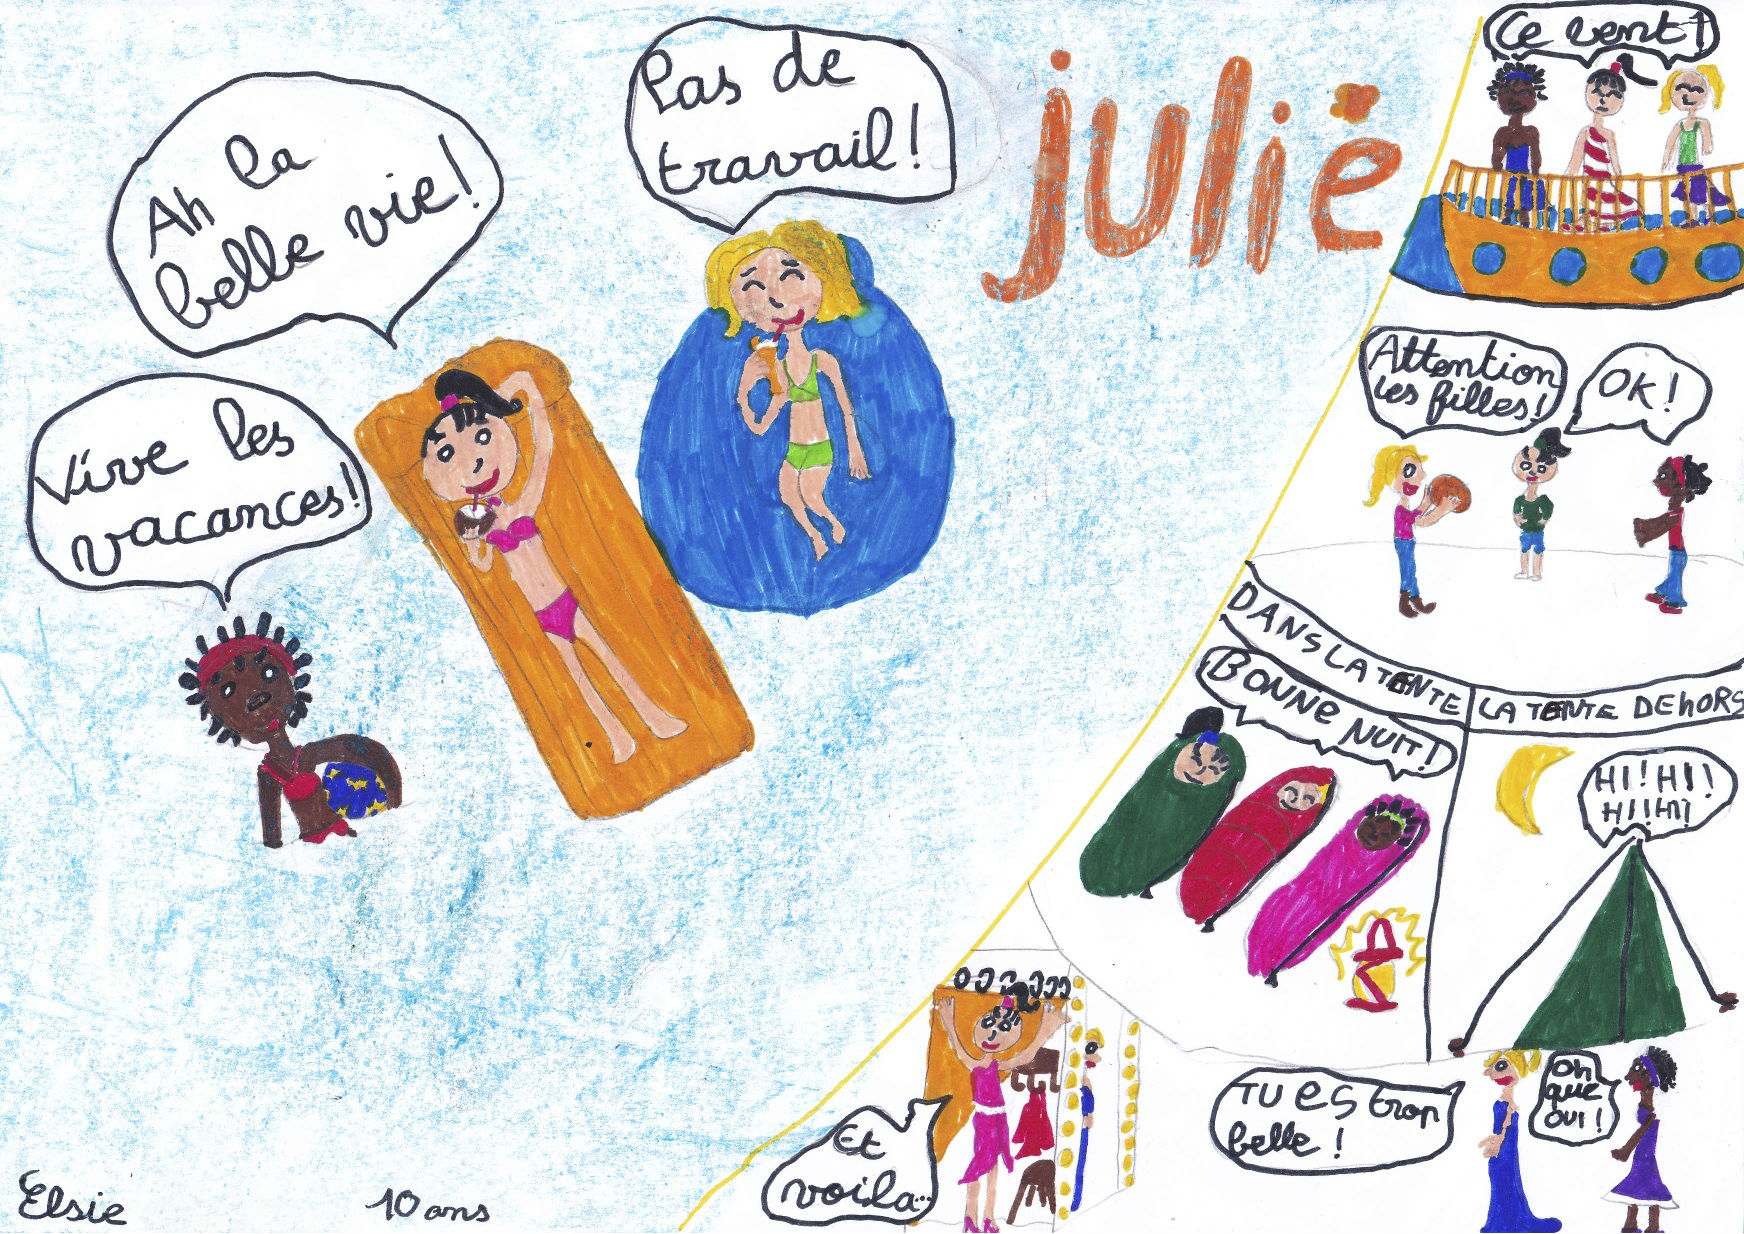 Ah la
belle vie!
Pas de
travail!
julie
Vive les
vacances!
Ce vent!
Attention
les filles!
OK!
DANS LA TENTE
LA TENTE DEhORS
BONNe NUIT!
HI!HI!
HI!HI!
Et
voila...
TU es trop
belle!
Oh
que
oui!
Elsie
10 ans